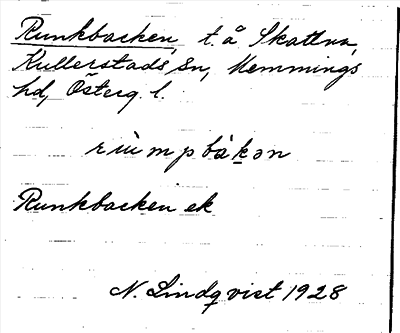 Runkbacken, t. å Skattna,
Kullerstads sn, Memmings
hd, Österg. l.
rùmpbàkən
Runkbacken ek
N. Lindqvist 1928